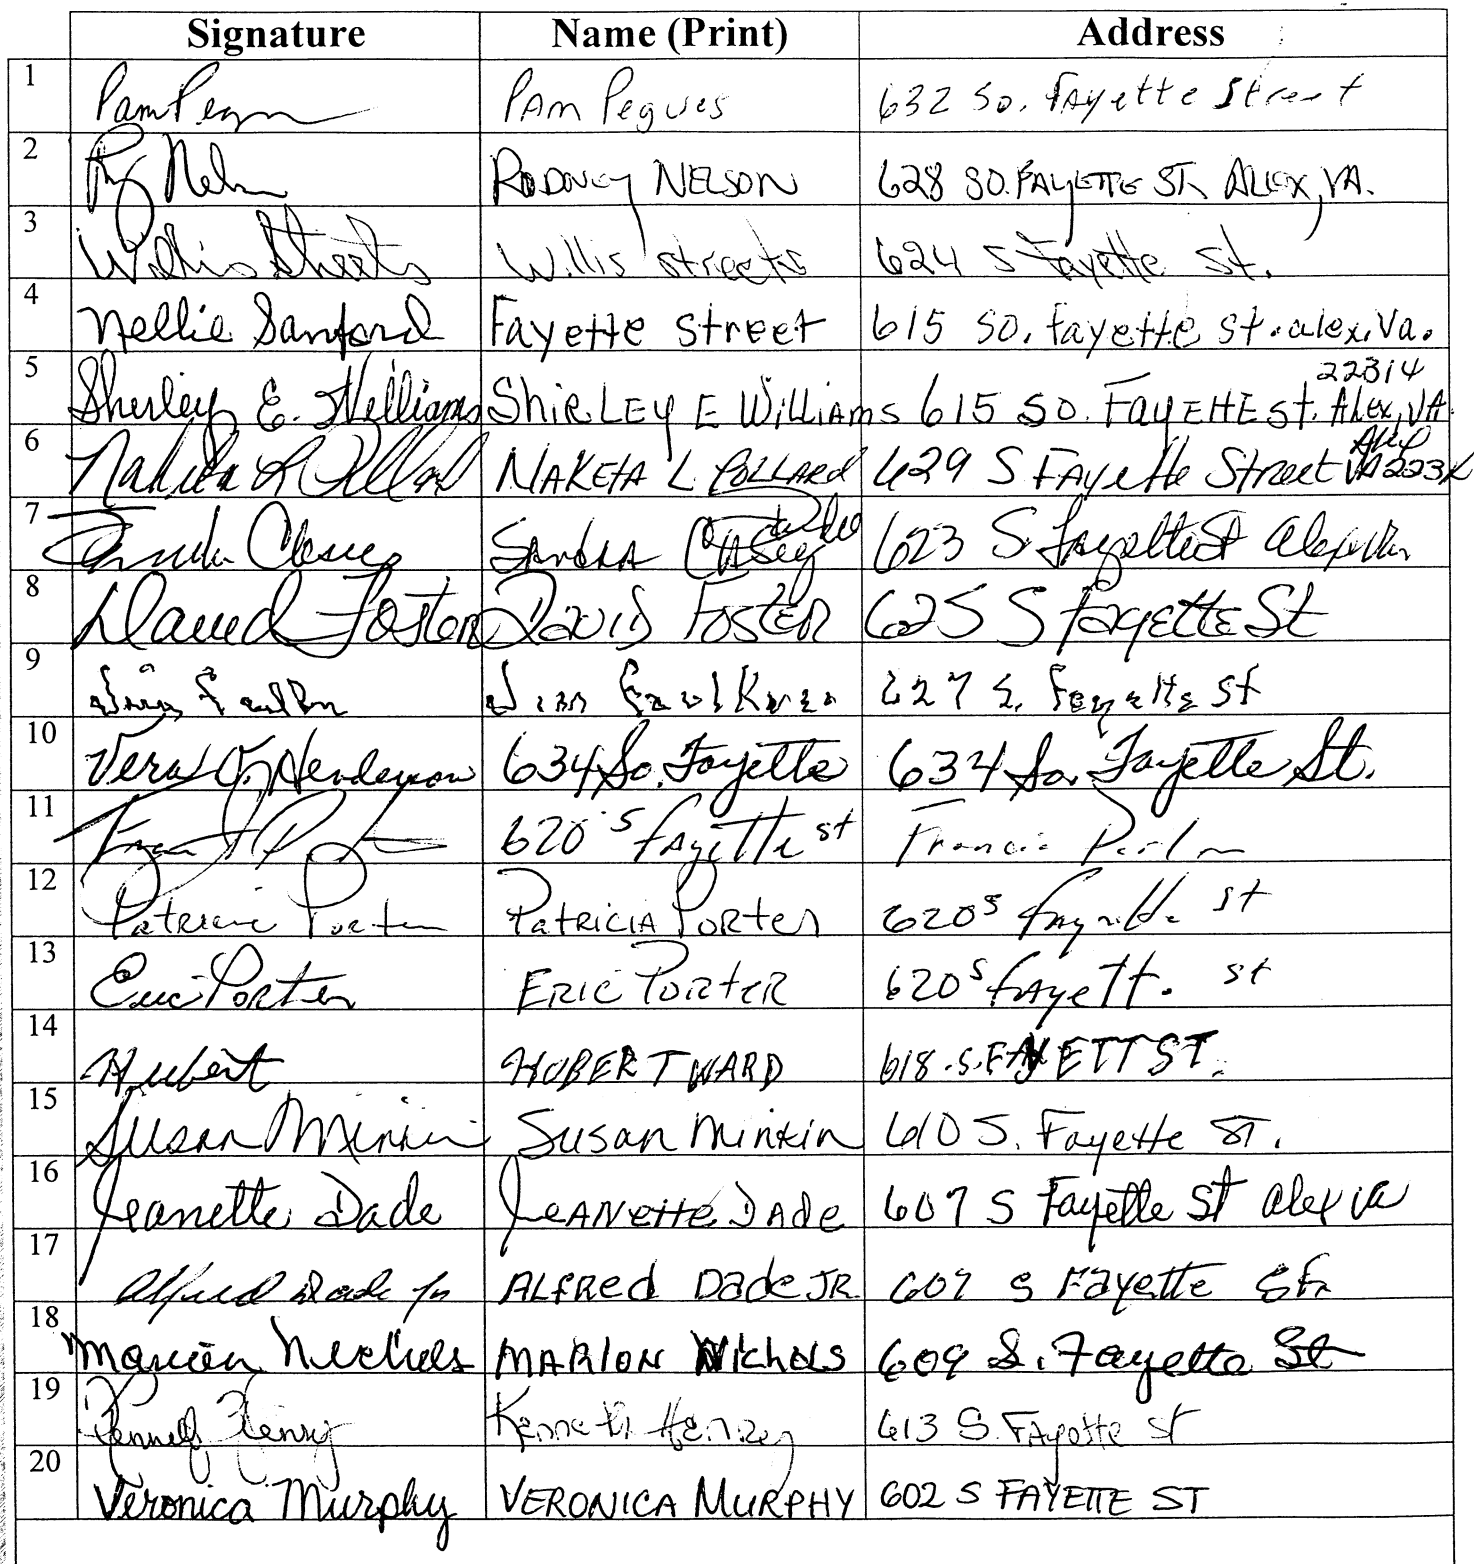 Signature Name (Print) Address
1 Pam Pegues PAm Pegues 632 So. Fayette Street
2 Nelson RODNEY NELSON 628 SO. FAYETTE ST. ALEX, VA.
3 Willis Streets Willis streets 624 S Fayette St.
4 Nellie Sanford Fayette Street 615 So. Fayette St. alex. Va.
22314
5 Shirley E. Williams ShiRLEY E WilliAms 615 SO. FAyETTE St. Alex, VA
Alex
6 Naketa L Pollard NAKETA L POLLARD 629 S FAyette Street VA 223
7 Sandra Casey SANdRA CASey 623 S Fayette St
8 David Foster DAVID FOSTER 625 S FAYETTE St
9 627 S. Fayette St
10 Vera J. Henderson 634 So. Fayette 634 So. Fayette St.
11 620 S FAyette st Francis
12 Patricia Porter PAtRICIA PORter 620 S Fayette St
13 Eric Porter ERIC PORTER 620 S FAyett. St
14 Hubert HUBERT WARD 618. S. FAYETT ST.
15 Susan Minkin Susan Minkin 610 S. Fayette ST.
16 Jeanette Dade JeANette DAde 607 S Fayette St Alex Va
17 Alfred Dade Jr ALFRed DadeJR. 607 S FAyette St
18 Marion Nichols MARION Nichols 609 S. Fayette St
19 Kenneth Henry Kenneth Henry 613 S. FAyette St
20 Veronica Murphy VERONICA MURPHY 602 S FAYETTE ST